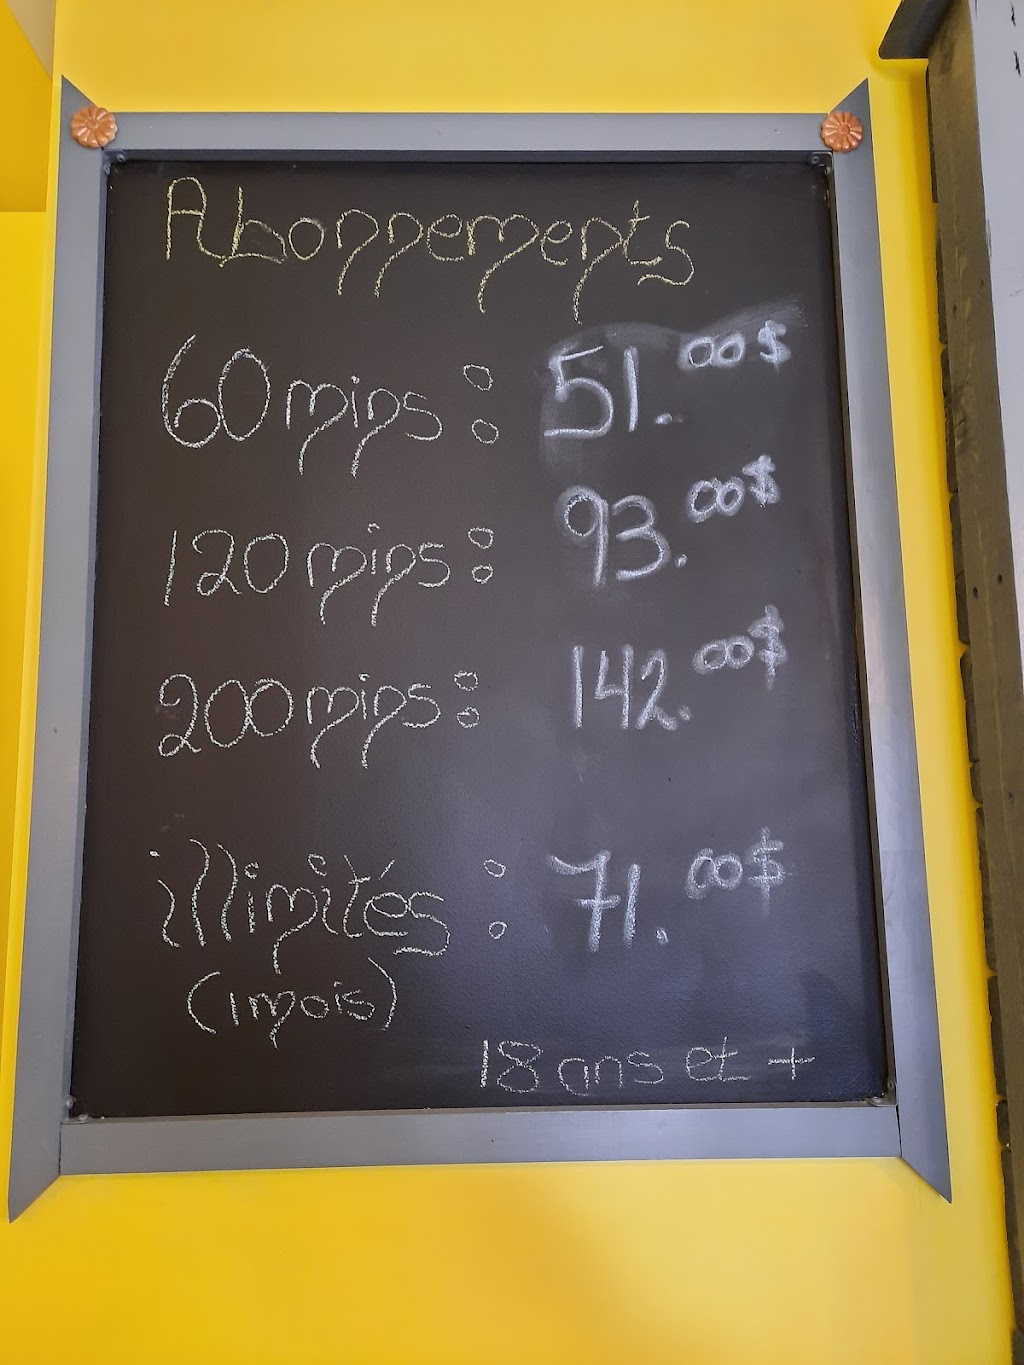 Abonnements
60 mins : 51.00$
120 mins : 93.00$
200 mins : 142.00$
illimités : 71.00$
(1 mois)
18 ans et +